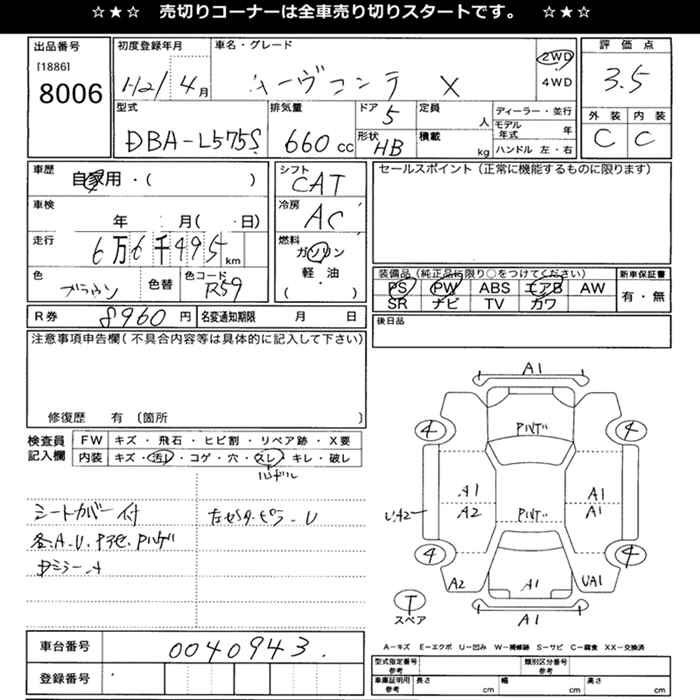 ☆★☆ 売切りコーナーは全車売り切りスタートです。 ☆★☆
出品番号 初度登録年月 車名・グレード 評価点
[1886]
8006 H21/4月 ムーヴコンテ X 2WD 4WD 3.5
型式 排気量 ドア 5 定員 人 ディーラー・並行 外装 内装
DBA-L575S 660cc 形状 HB 積載 kg モデル年式 年 C C
ハンドル 左・右
車歴 シフト セールスポイント(正常に機能するものに限ります)
自家用・( ) CAT
車検 冷房
年 月(・日) AC
走行 燃料
6万6千495km ガソリン
色 色替 色コード 軽・油 装備品(純正品に限り○をつけてください) 新車保証書
ブラウン R59 ( ) PS PW ABS エアB AW 有・無
SR ナビ TV カワ
R券 8960円 名変通知期限 月 日 後日品
注意事項申告欄(不具合内容等は具体的に記入して下さい)
修復歴 有 〔箇所 〕
検査員 FW キズ・飛石・ヒビ割・リペア跡・X要
記入欄 内装 キズ・汚レ・コゲ・穴・スレ・キレ・破レ
ハンドル
シートカバー付
各.A.U.
A1
4 4
A1 A1
A2 A1
4 4
A2 A1 UA1
T
スペア A1
A-キズ E-エクボ U-凹み W-補修跡 S-サビ C-腐食 XX-交換済
車台番号 0040943.
登録番号
型式指定番号 参考 類別区分番号 参考
車庫証明用 参考 長さ cm 幅 cm 高さ cm